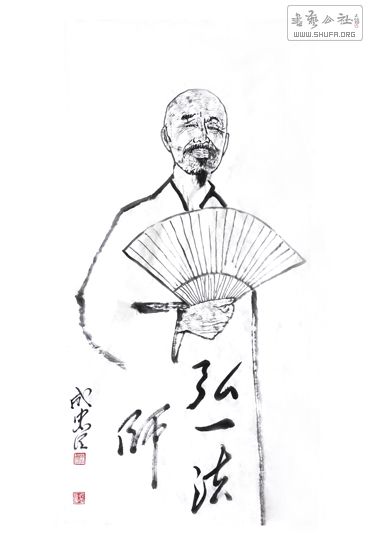 書藝公社
WWW.SHUFA.ORG
弘一法
師